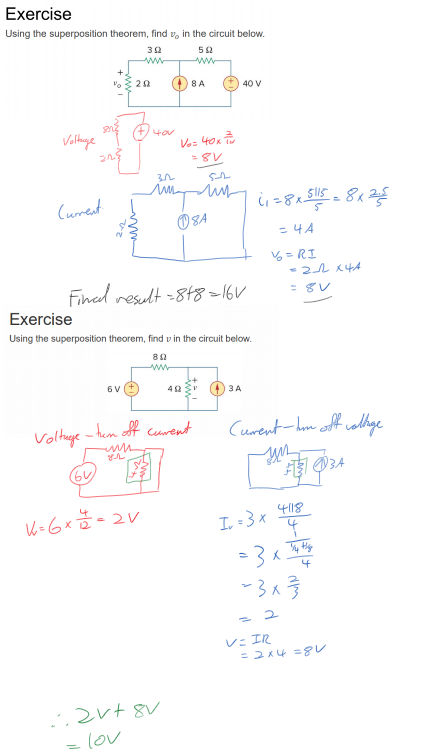 Exercise
Using the superposition theorem, find vₒ in the circuit below.
3 Ω 5 Ω
+
vₒ 2 Ω 8 A + 40 V
−
Voltage 8Ω + 40V
2Ω
Vₒ = 40 × 2/10
= 8V
Current 3Ω 5Ω
2Ω ↑ 8A
i₁ = 8 × 5||5/5 = 8 × 2.5/5
= 4A
Vₒ = RI
= 2Ω × 4A
= 8V
Final result = 8+8 = 16V
Exercise
Using the superposition theorem, find v in the circuit below.
8 Ω
6 V + 4 Ω + v − 3 A
Voltage - turn off current
8Ω
6V
V₁ = 6 × 4/12 = 2V
Current - turn off voltage
8Ω
↑ 3A
Iᵥ = 3 × 4||8/4
= 3 × 1/(1/4 + 1/8)/4
= 3 × 2/3
= 2
V = IR
= 2 × 4 = 8V
∴ 2V + 8V
= 10V